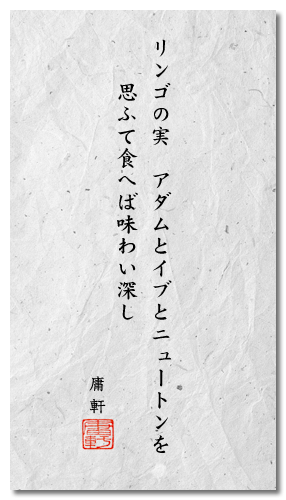 リンゴの実　アダムとイブとニュートンを
思ふて食へば味わい深し
庸軒
庸軒